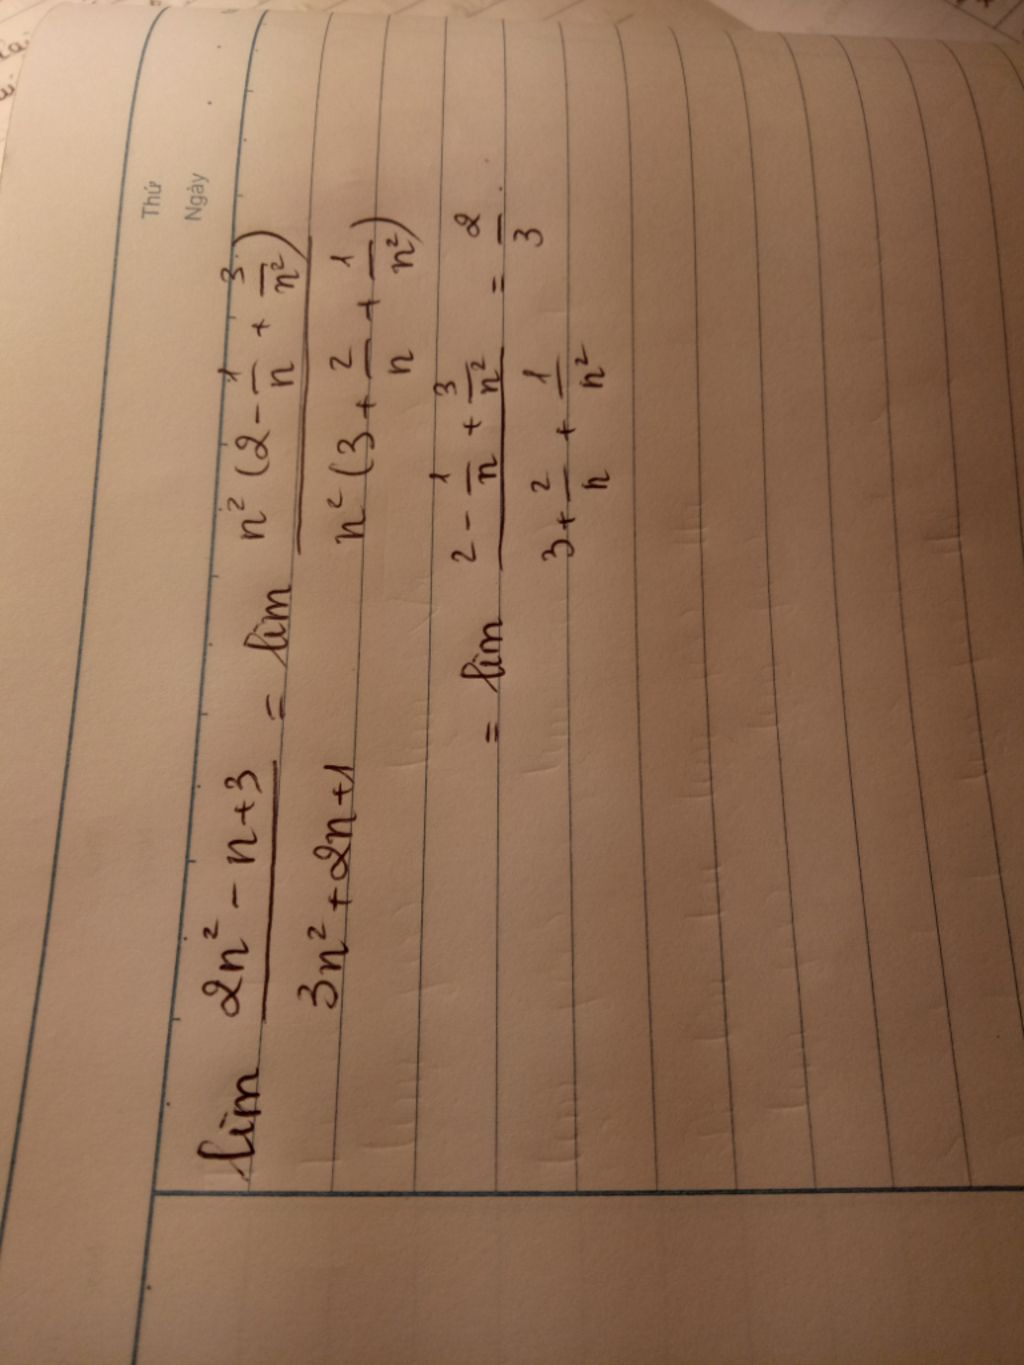 Thứ
Ngày
lim (2n² - n + 3)/(3n² + 2n + 1) = lim (n² (2 - 1/n + 3/n²))/(n² (3 + 2/n + 1/n²))
= lim (2 - 1/n + 3/n²)/(3 + 2/n + 1/n²) = 2/3.